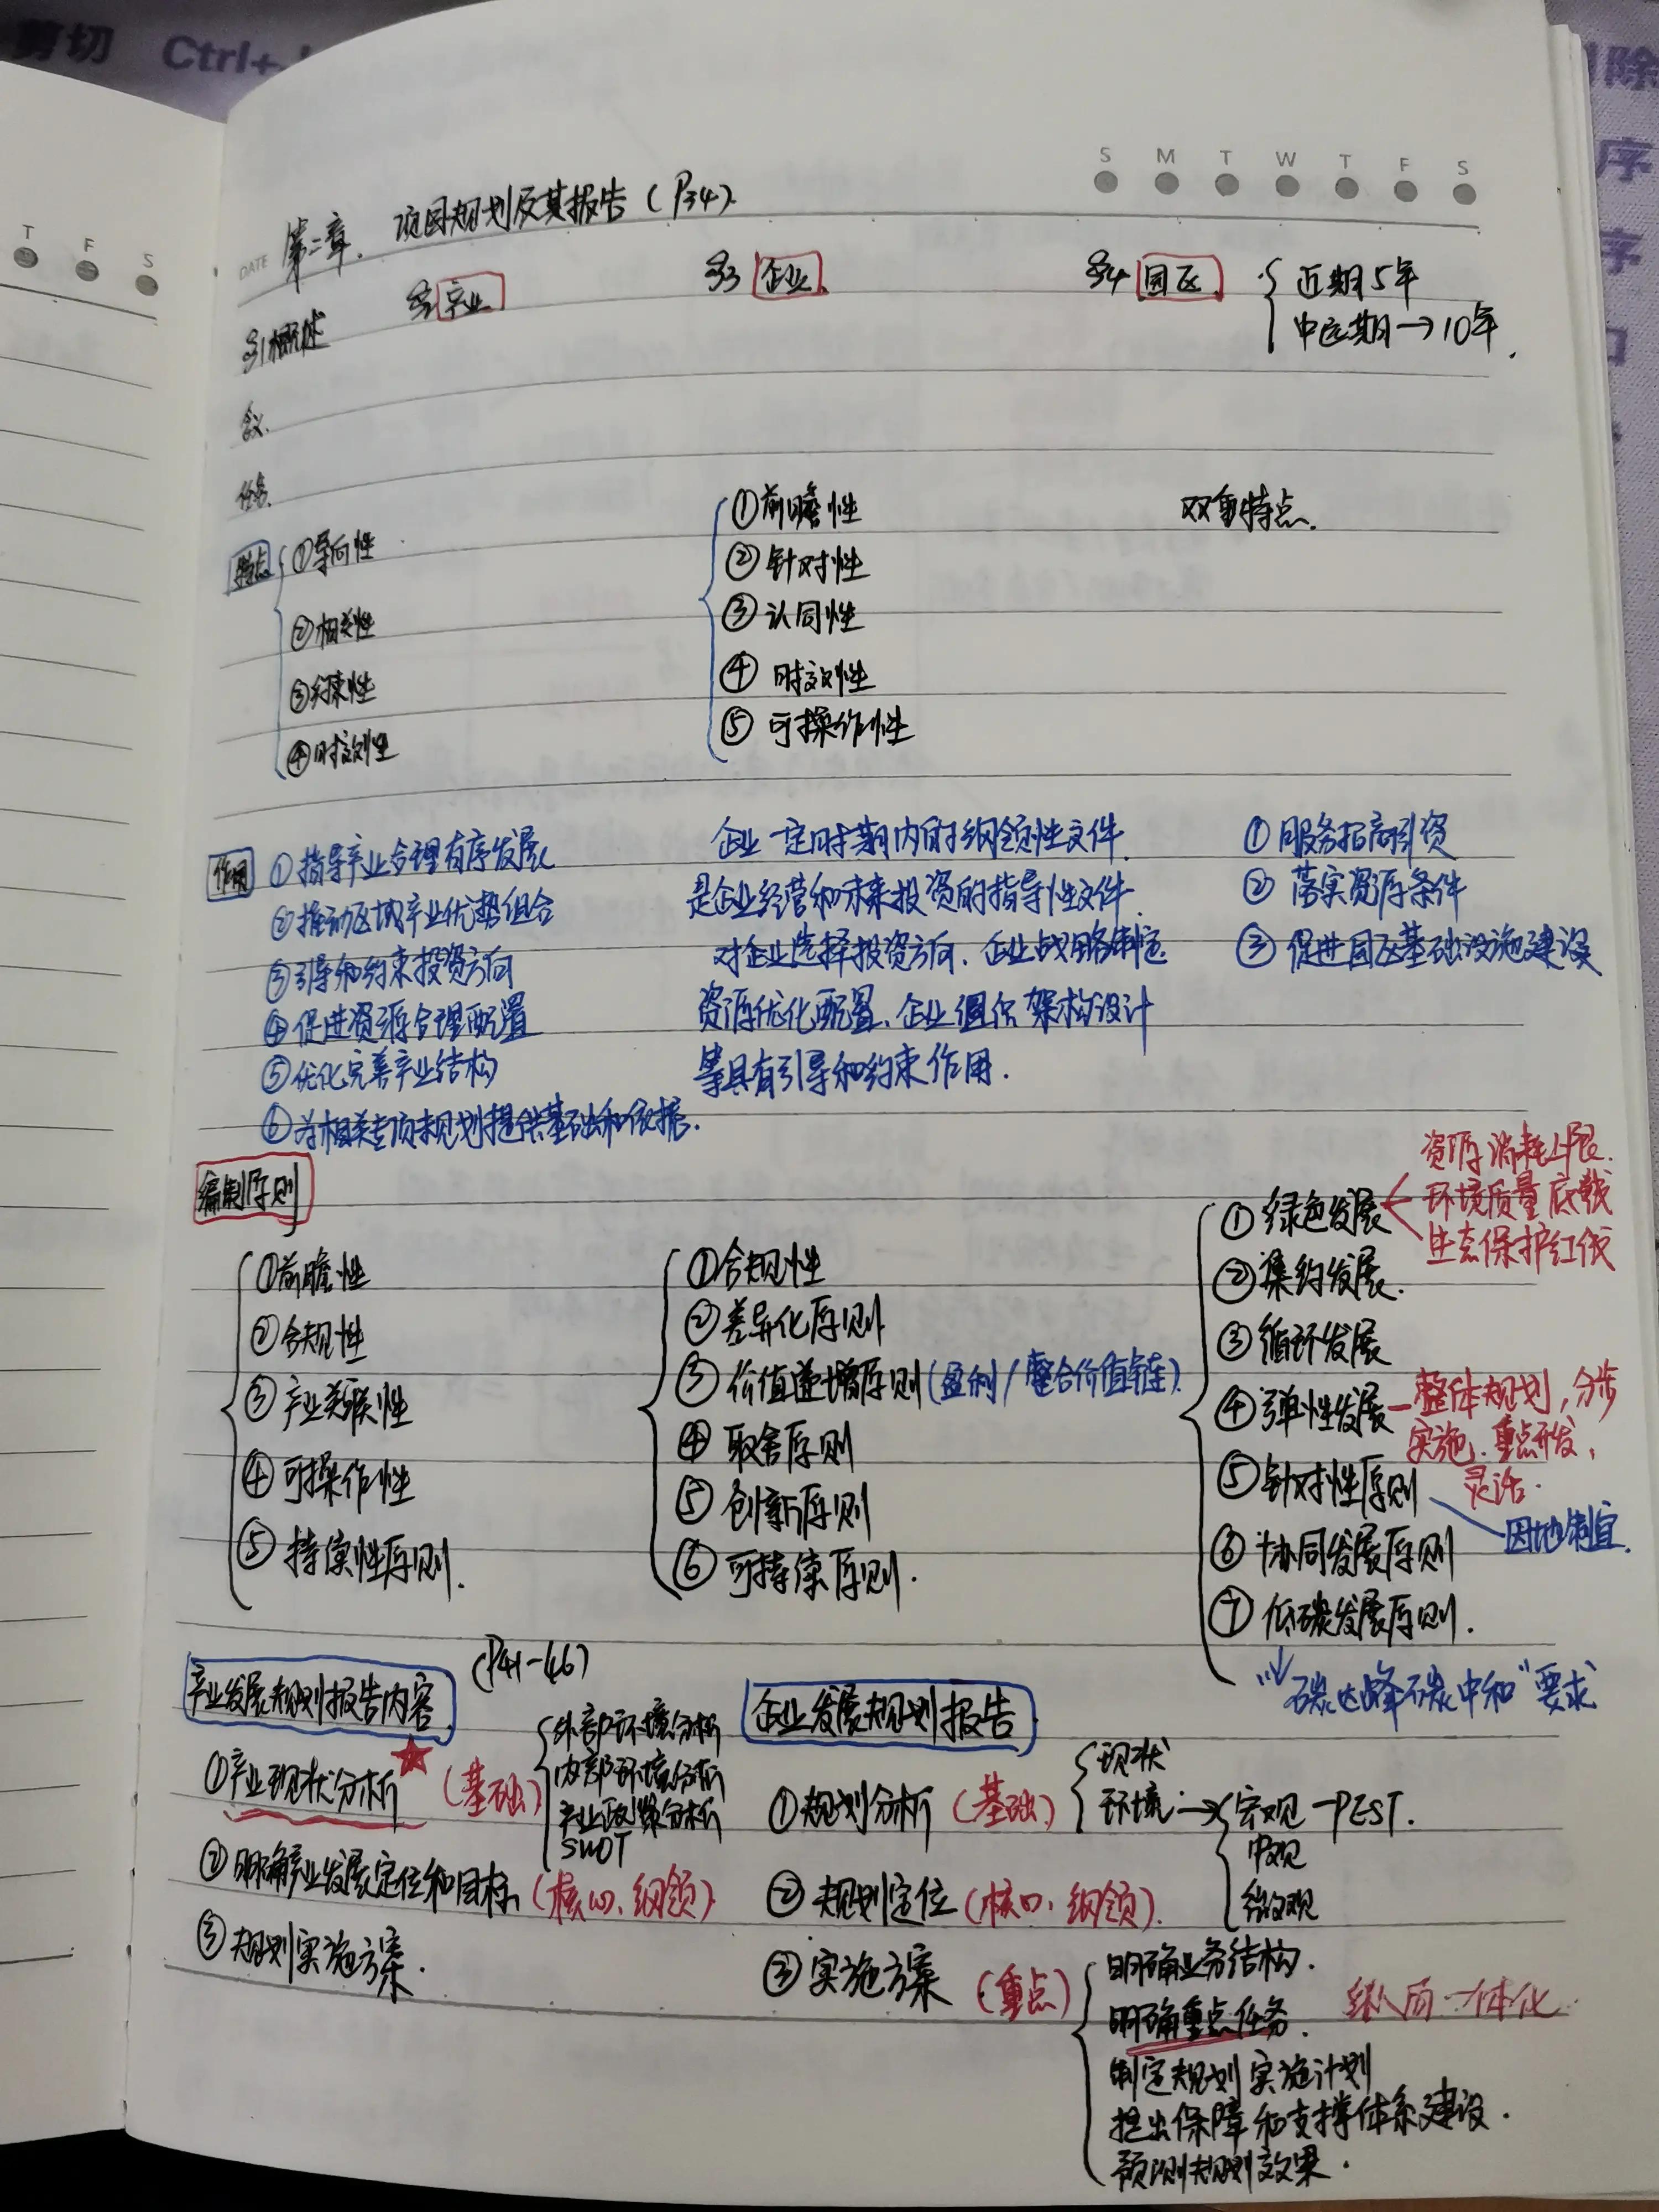 剪切 Ctrl+
除
序
字
T F S
S M T W T F S
DATE
第二章. 项目规划及其报告(P34).
§1 概述
§2 产业
§3 企业.
§4 园区.
近期5年
中远期→10年.
含义.
任务.
特点
①导向性
②相关性
③约束性
④时效性
①前瞻性
②针对性
③认同性
④时效性
⑤可操作性
双重特点.
作用
①指导产业合理有序发展
②推动区域产业优势组合
③引导和约束投资方向
④促进资源合理配置
⑤优化完善产业结构
⑥为相关专项规划提供基础和依据.
企业一定时期内的纲领性文件.
是企业经营和未来投资的指导性文件.
对企业选择投资方向、企业战略制定
资源优化配置、企业组织架构设计
等具有引导和约束作用.
①服务招商引资
②落实资源条件
③促进园区基础设施建设
编制原则
①前瞻性
②合规性
③产业关联性
④可操作性
⑤持续性原则.
①合规性
②差异化原则
③价值递增原则(盈利/整合价值链).
④取舍原则
⑤创新原则
⑥可持续原则.
①绿色发展
资源消耗上限.
环境质量底线
生态保护红线
②集约发展.
③循环发展
④弹性发展—整体规划,分步
实施、重点开发,
灵活.
⑤针对性原则
因地制宜.
⑥协同发展原则
⑦低碳发展原则.
"碳达峰碳中和"要求
产业发展规划报告内容.
(P41-46)
①产业现状分析★(基础)
外部环境分析
内部环境分析
产业政策分析
SWOT
②明确产业发展定位和目标(核心、纲领).
③规划实施方案.
企业发展规划报告.
①规划分析(基础)
现状
环境→宏观—PEST.
中观
微观
②规划定位(核心、纲领).
③实施方案(重点)
明确业务结构.
明确重点任务. 纵向一体化
制定规划实施计划
提出保障和支撑体系建设.
预测规划效果.